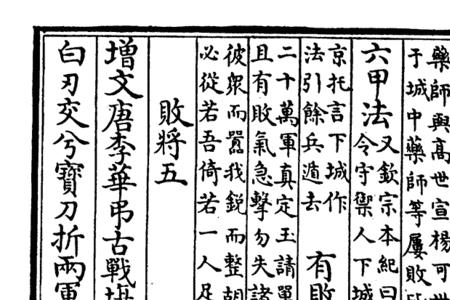 藥師與高世宣楊可世
于城中藥師等屢敗
六甲法
又欽宗本紀曰
令守禦人下城
京托言下城作
法引餘兵遁去
有敗
二十萬軍真定王請單
且有敗氣急擊勿失諸
彼衆而囂我銳而整胡
必從若吾倚若一人足
敗將五
增文唐李華弔古戰
白刃交兮寶刀折兩軍